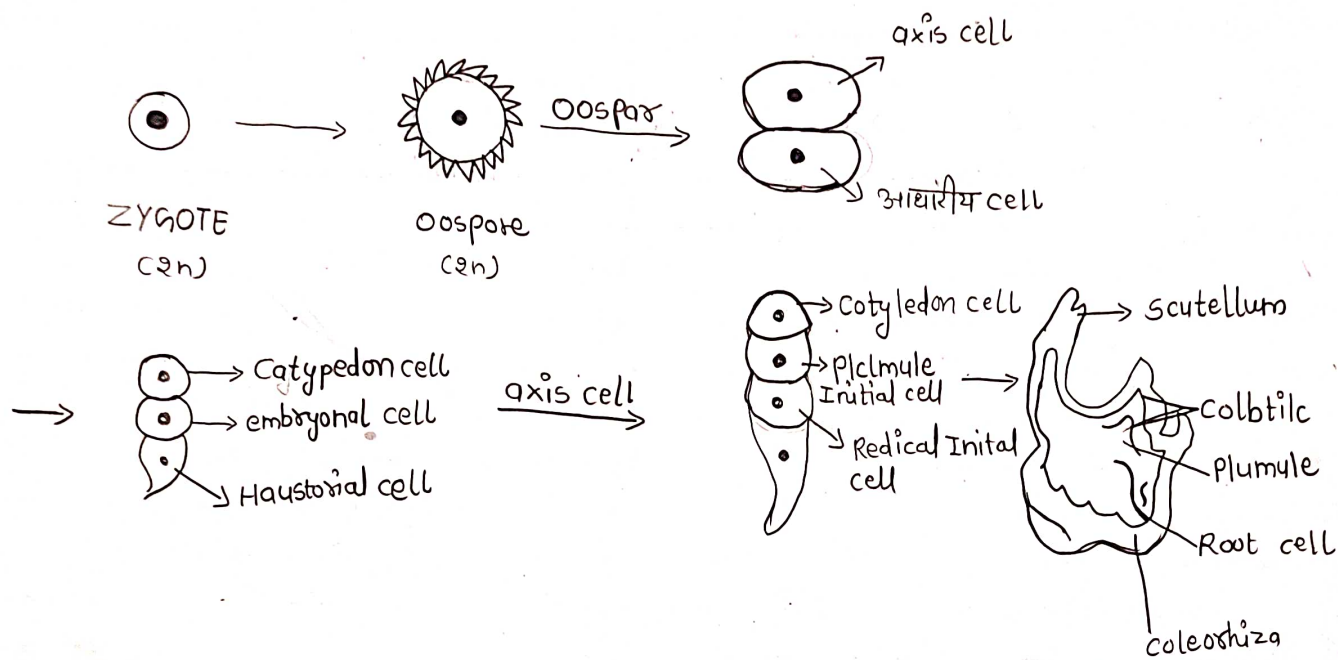 axis cell
oospar
ZYGOTE
(2n)
oospore
(2n)
आधारीय cell
Catypedon cell
embryonal cell
Haustorial cell
axis cell
Cotyledon cell
Plclmule
Initial cell
Redical Inital
cell
Scutellum
Colbtilc
Plumule
Root cell
coleorhiza